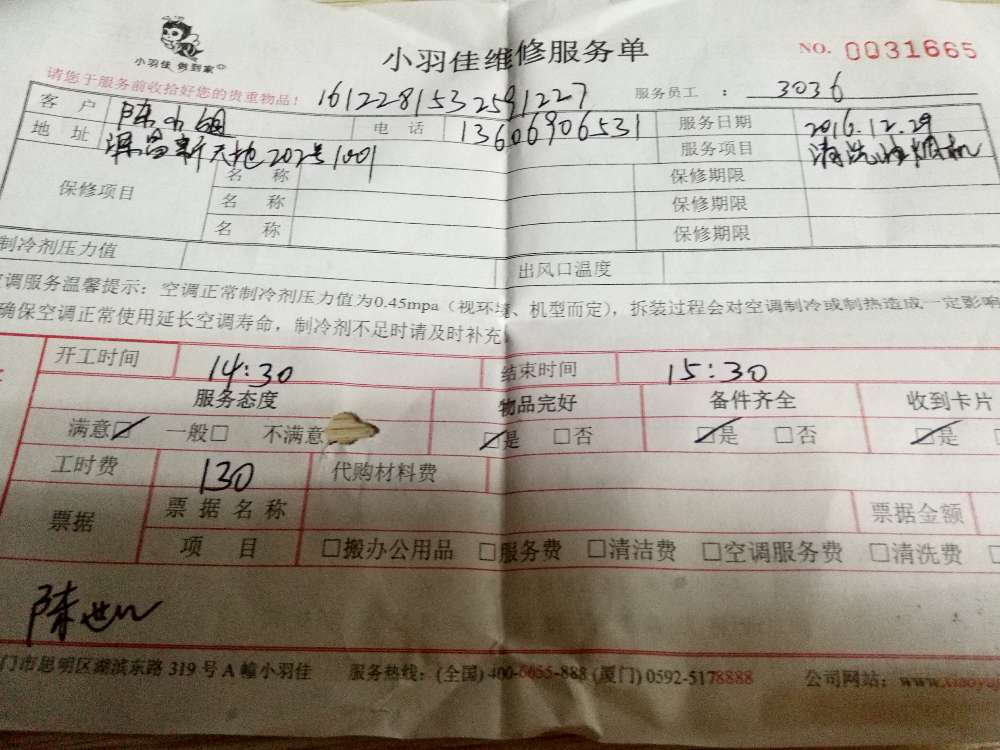 小羽佳 做到家
小羽佳维修服务单
NO. 0031665
请您于服务前收拾好您的贵重物品！
1612281532591227
服务员工：3036
客户 陈小姐 电话 13606906531 服务日期 2016.12.29
地址 新天地202号1001 服务项目 清洗油烟机
保修项目 名称 保修期限
名称 保修期限
名称 保修期限
制冷剂压力值 出风口温度
调服务温馨提示：空调正常制冷剂压力值为0.45mpa（视环境、机型而定），拆装过程会对空调制冷或制热造成一定影响
确保空调正常使用延长空调寿命，制冷剂不足时请及时补充
开工时间 14:30 结束时间 15:30
服务态度 物品完好 备件齐全 收到卡片
满意☑ 一般□ 不满意 ☑是 □否 ☑是 □否 ☑是
工时费 130 代购材料费
票据 票据名称 票据金额
项目 □搬办公用品 □服务费 □清洁费 □空调服务费 □清洗费
陈
门市思明区湖滨东路 319 号 A 幢小羽佳 服务热线：(全国) 400-6655-888 (厦门) 0592-5178888 公司网站：www.xiaoyu